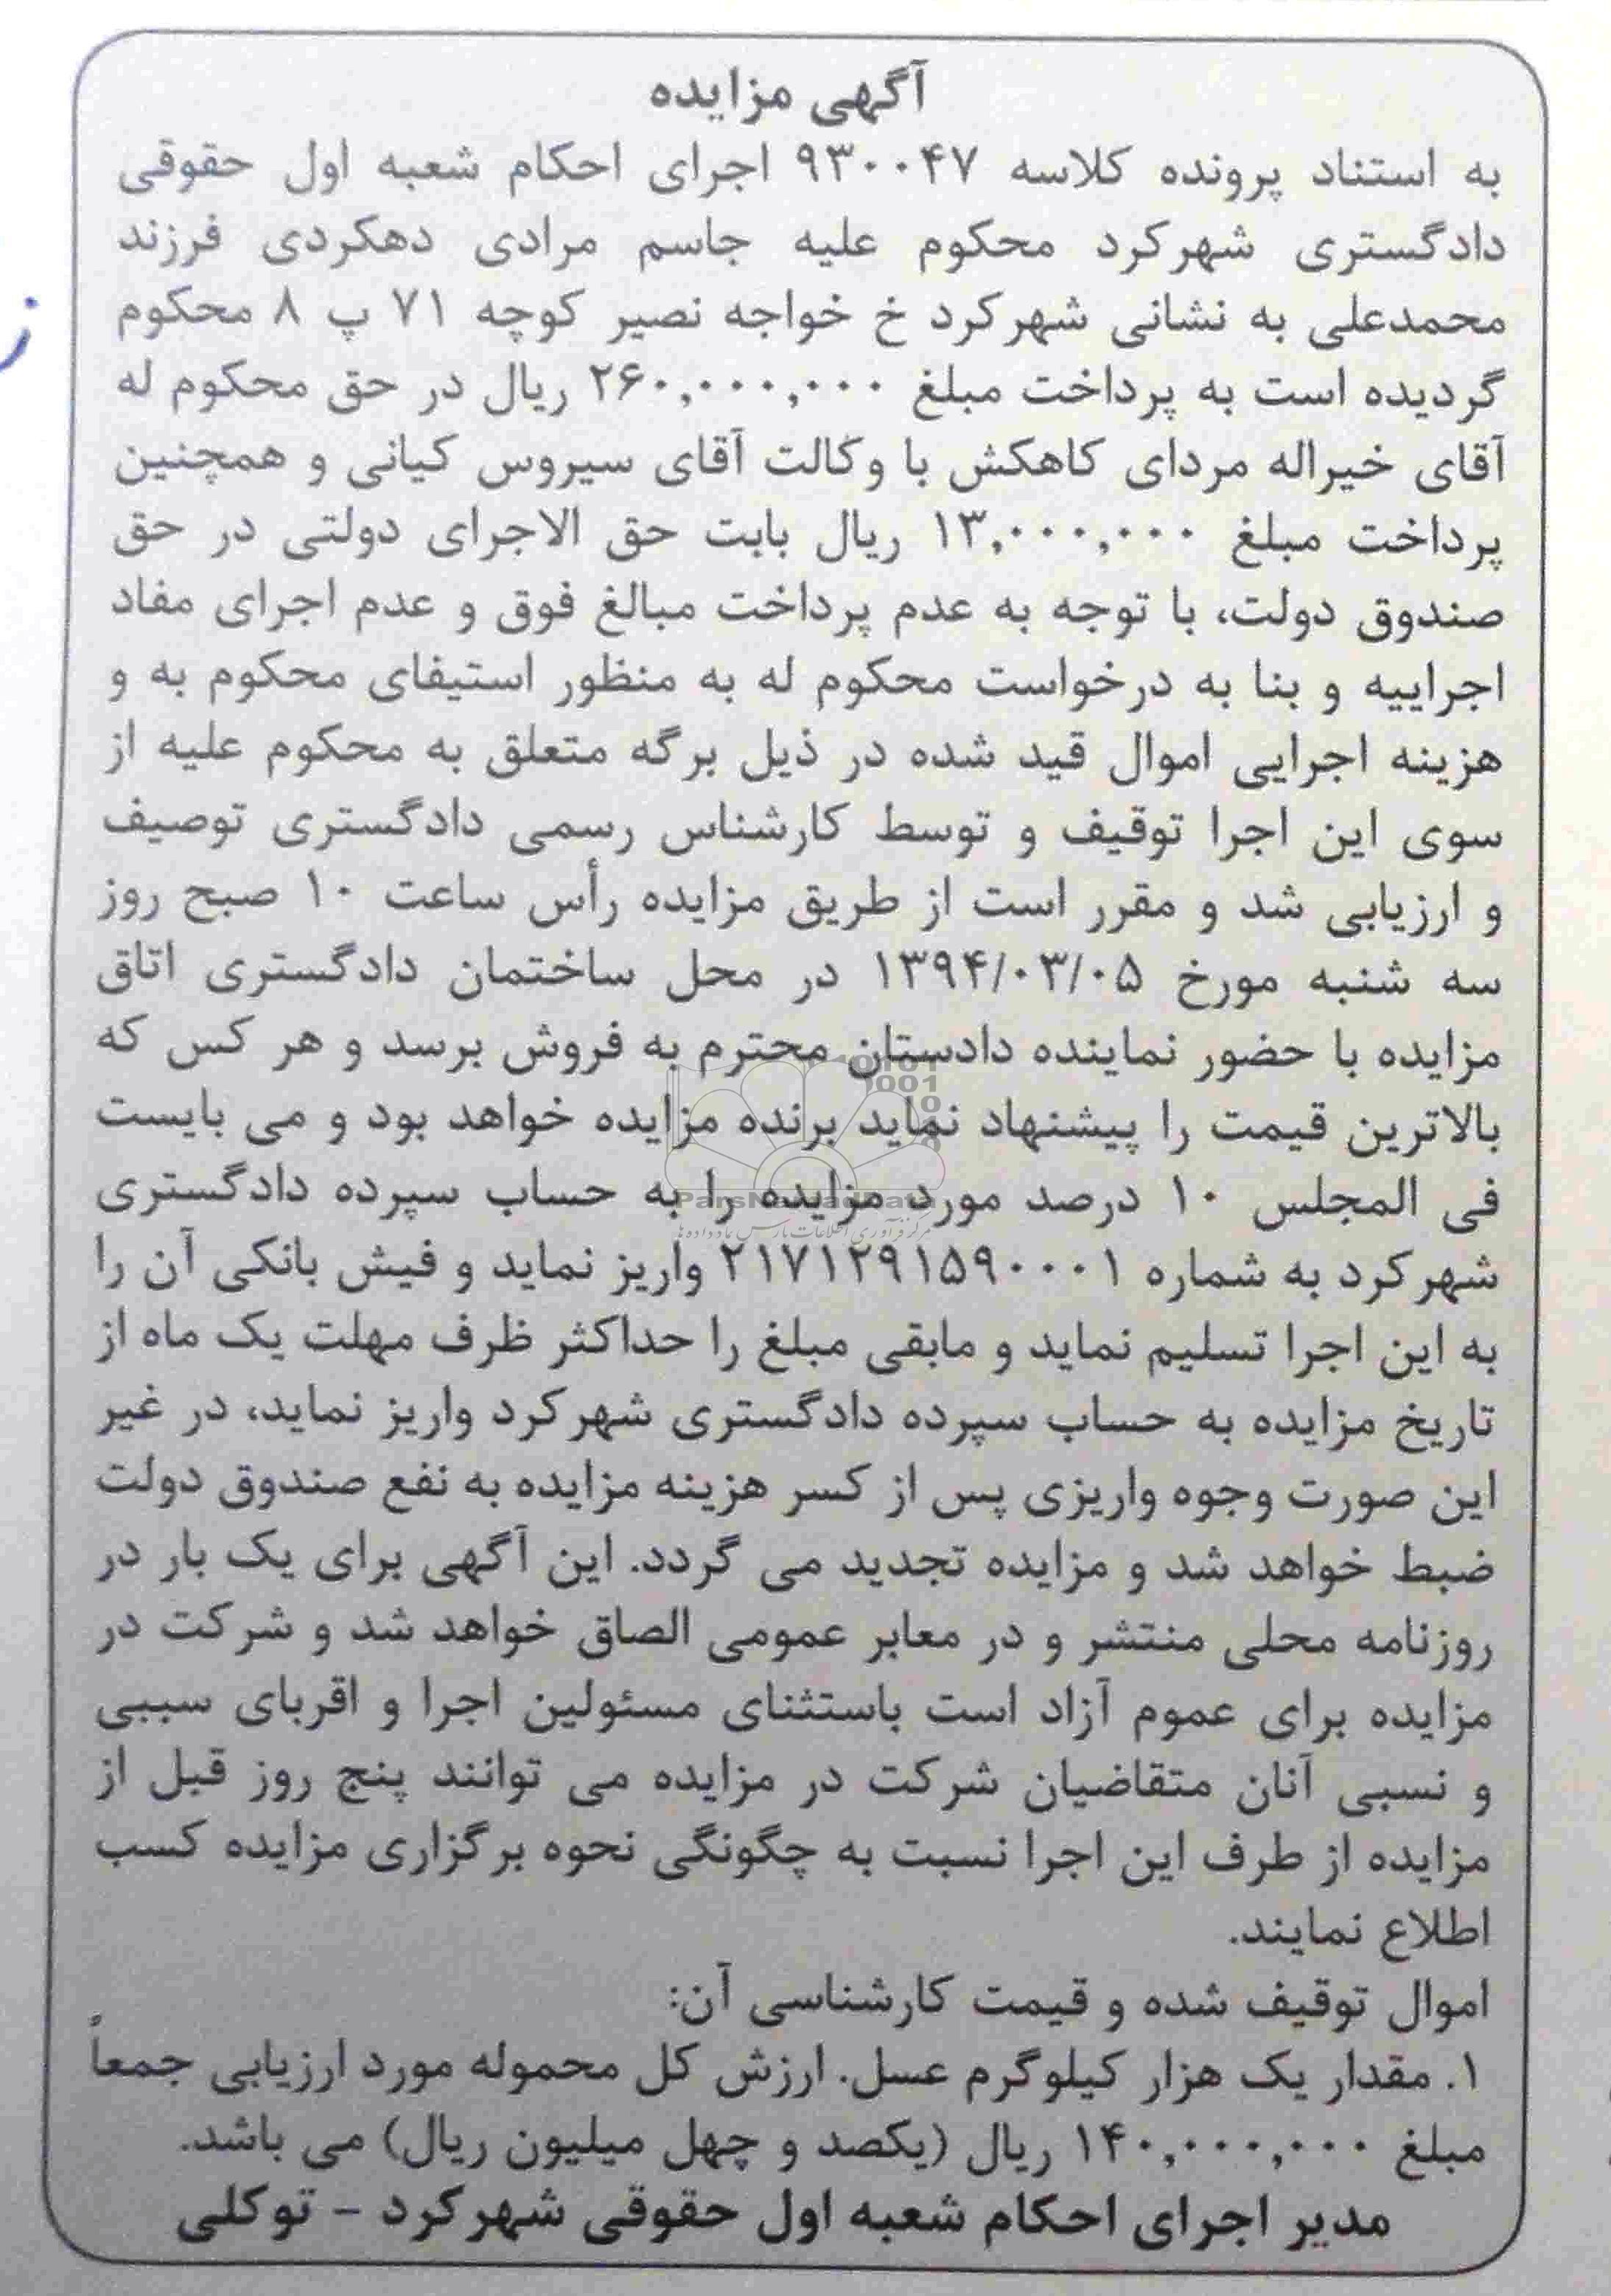 آگهی مزایده
به استناد پرونده کلاسه ۹۳۰۰۴۷ اجرای احکام شعبه اول حقوقی
دادگستری شهرکرد محکوم علیه جاسم مرادی دهکردی فرزند
محمدعلی به نشانی شهرکرد خ خواجه نصیر کوچه ۷۱ پ ۸ محکوم
گردیده است به پرداخت مبلغ ۲۶۰,۰۰۰,۰۰۰ ریال در حق محکوم له
آقای خیراله مردای کاهکش با وکالت آقای سیروس کیانی و همچنین
پرداخت مبلغ ۱۳,۰۰۰,۰۰۰ ریال بابت حق الاجرای دولتی در حق
صندوق دولت، با توجه به عدم پرداخت مبالغ فوق و عدم اجرای مفاد
اجراییه و بنا به درخواست محکوم له به منظور استیفای محکوم به و
هزینه اجرایی اموال قید شده در ذیل برگه متعلق به محکوم علیه از
سوی این اجرا توقیف و توسط کارشناس رسمی دادگستری توصیف
و ارزیابی شد و مقرر است از طریق مزایده رأس ساعت ۱۰ صبح روز
سه شنبه مورخ ۱۳۹۴/۰۳/۰۵ در محل ساختمان دادگستری اتاق
مزایده با حضور نماینده دادستان محترم به فروش برسد و هر کس که
بالاترین قیمت را پیشنهاد نماید برنده مزایده خواهد بود و می بایست
فی المجلس ۱۰ درصد مورد مزایده را به حساب سپرده دادگستری
شهرکرد به شماره ۲۱۷۱۲۹۱۵۹۰۰۰۱ واریز نماید و فیش بانکی آن را
به این اجرا تسلیم نماید و مابقی مبلغ را حداکثر ظرف مهلت یک ماه از
تاریخ مزایده به حساب سپرده دادگستری شهرکرد واریز نماید، در غیر
این صورت وجوه واریزی پس از کسر هزینه مزایده به نفع صندوق دولت
ضبط خواهد شد و مزایده تجدید می گردد. این آگهی برای یک بار در
روزنامه محلی منتشر و در معابر عمومی الصاق خواهد شد و شرکت در
مزایده برای عموم آزاد است باستثنای مسئولین اجرا و اقربای سببی
و نسبی آنان متقاضیان شرکت در مزایده می توانند پنج روز قبل از
مزایده از طرف این اجرا نسبت به چگونگی نحوه برگزاری مزایده کسب
اطلاع نمایند.
اموال توقیف شده و قیمت کارشناسی آن:
۱. مقدار یک هزار کیلوگرم عسل. ارزش کل محموله مورد ارزیابی جمعاً
مبلغ ۱۴۰,۰۰۰,۰۰۰ ریال (یکصد و چهل میلیون ریال) می باشد.
مدیر اجرای احکام شعبه اول حقوقی شهرکرد - توکلی